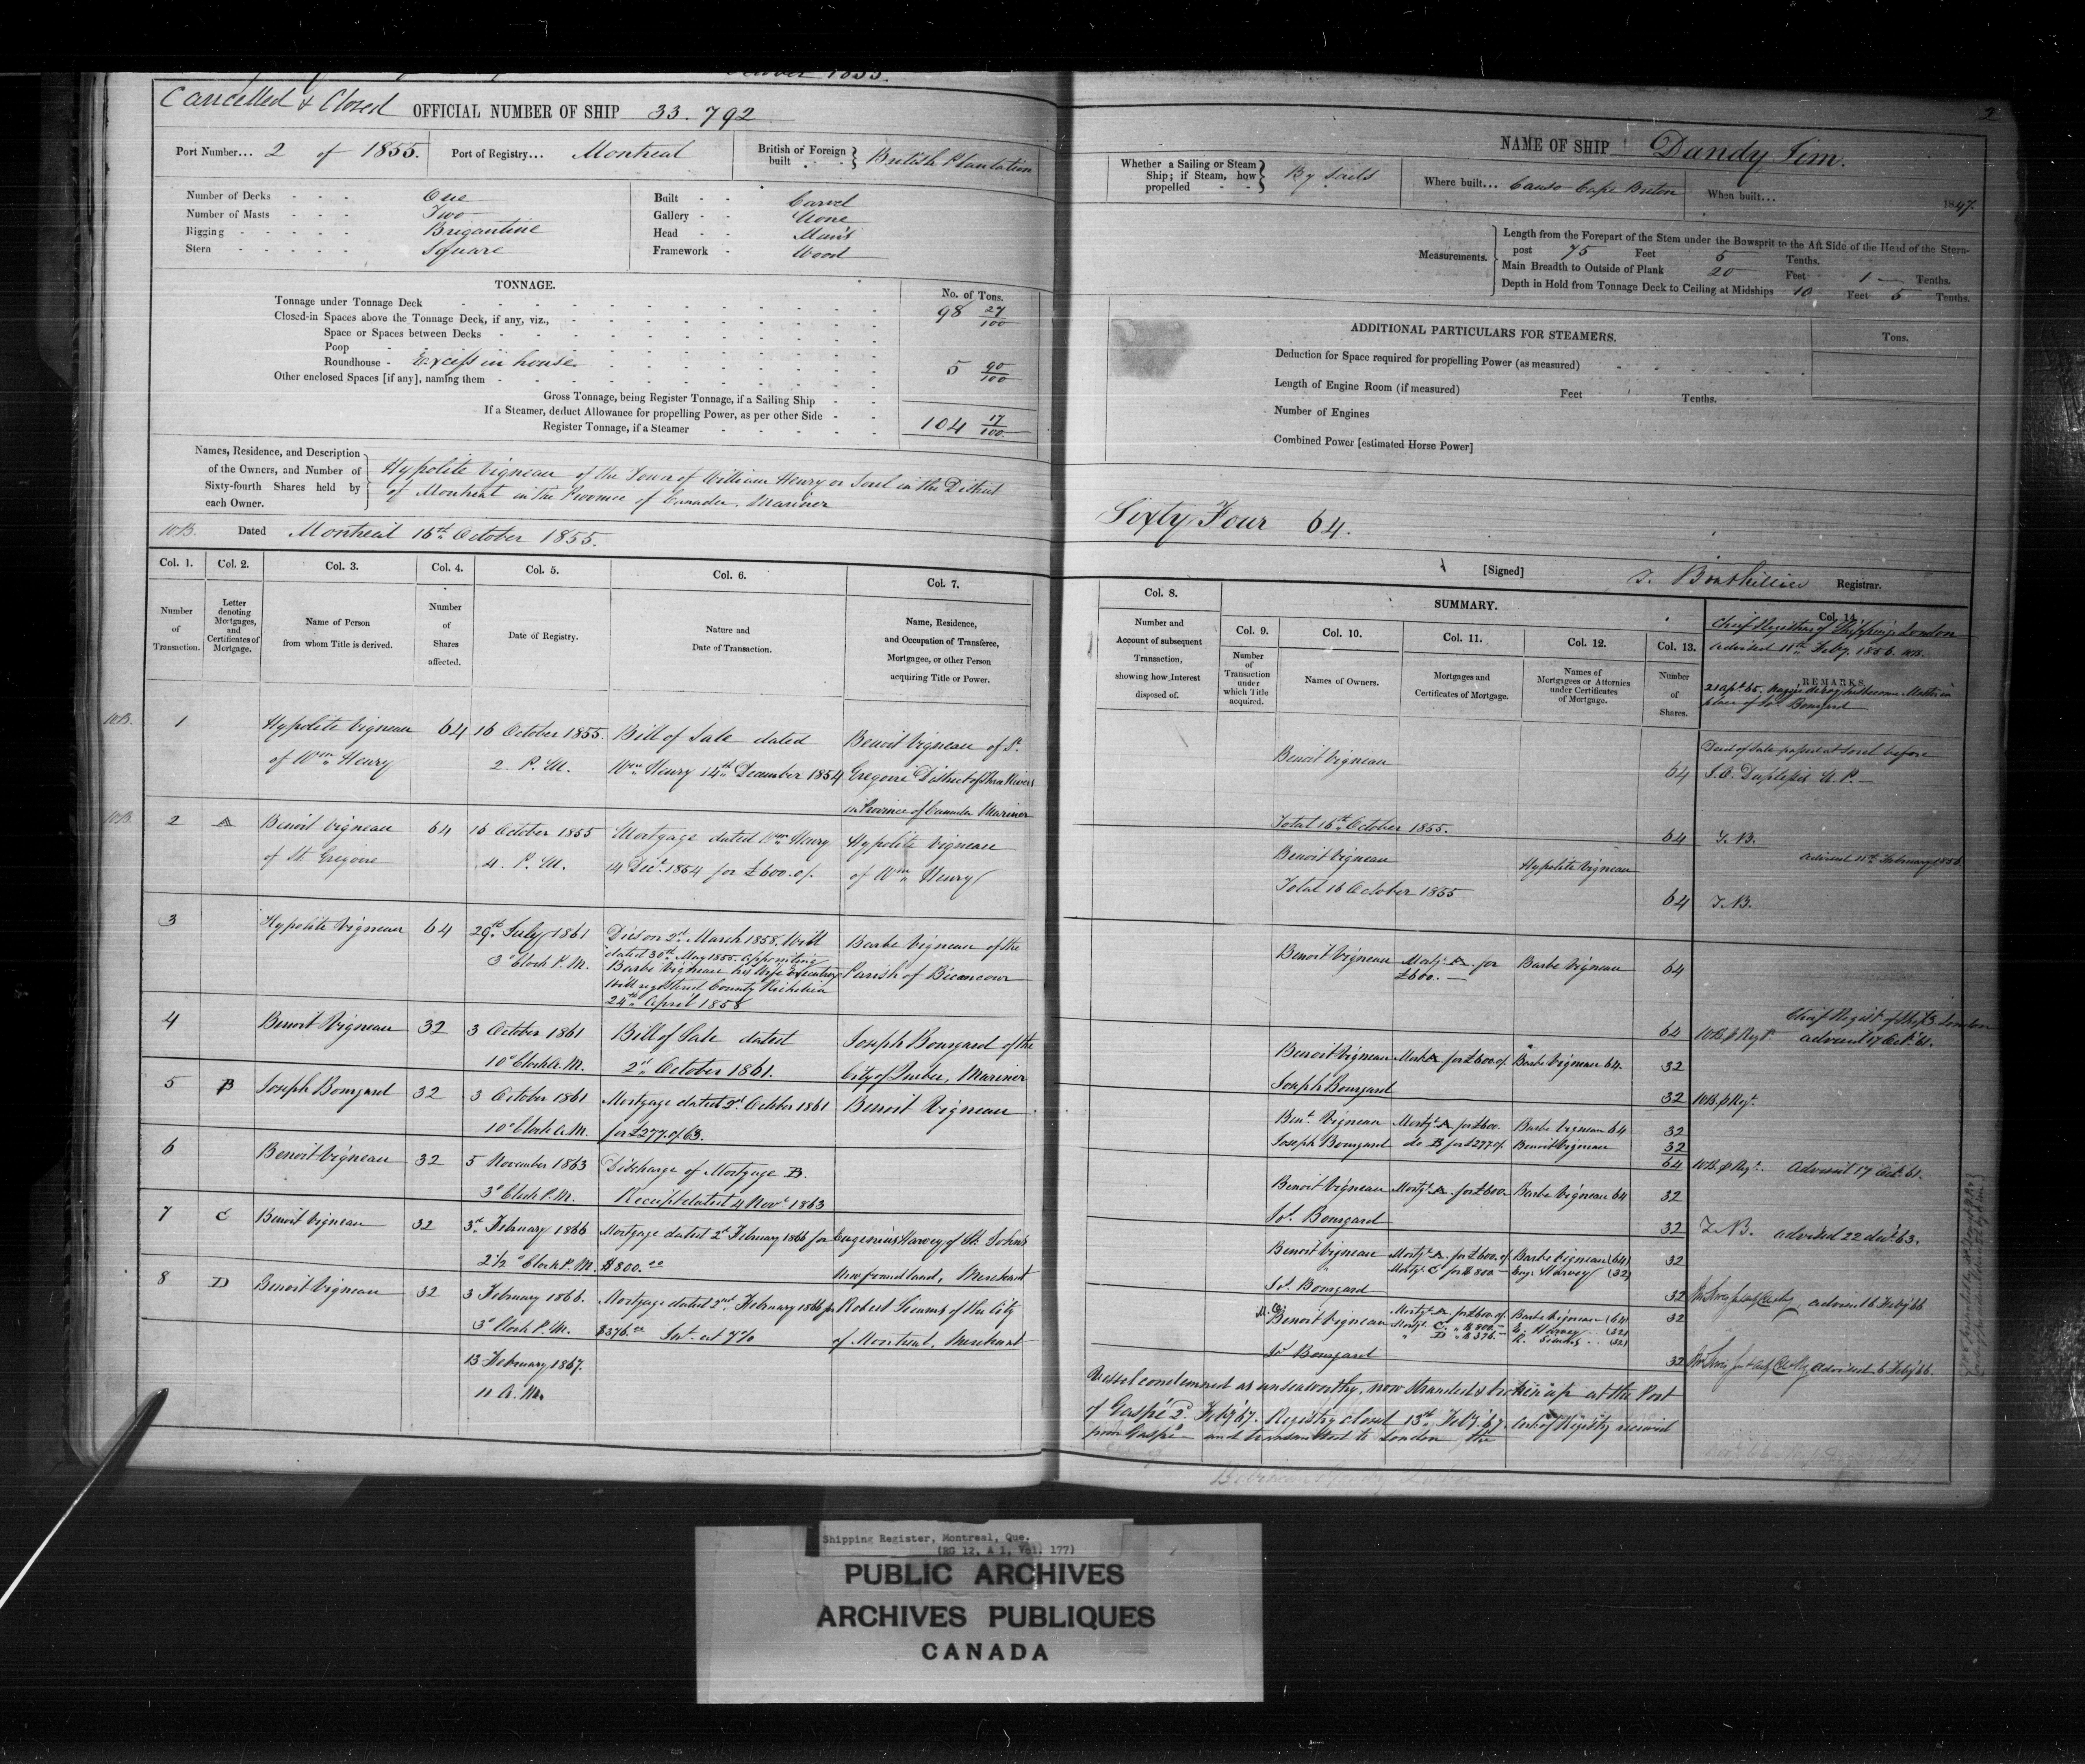 October 1855.
Cancelled & Closed OFFICIAL NUMBER OF SHIP 33.792
Port Number... 2 of 1855. Port of Registry... Montreal British or Foreign built British Plantation
Number of Decks One
Number of Masts Two
Rigging Brigantine
Stern Square
Built Carvel
Gallery None
Head Man's
Framework Wood
TONNAGE. No. of Tons.
Tonnage under Tonnage Deck 98 27/100
Closed-in Spaces above the Tonnage Deck, if any, viz.,
Space or Spaces between Decks
Poop
Roundhouse - Excess in house 5 90/100
Other enclosed Spaces [if any], naming them
Gross Tonnage, being Register Tonnage, if a Sailing Ship
If a Steamer, deduct Allowance for propelling Power, as per other Side
Register Tonnage, if a Steamer 104 17/100
Names, Residence, and Description
of the Owners, and Number of
Sixty-fourth Shares held by
each Owner.
Hypolite Vigneau of the Town of William Henry or Sorel in the District
of Montreal in the Province of Canada. Mariner
Dated Montreal 16th October 1855.
Col. 1. Col. 2. Col. 3. Col. 4. Col. 5. Col. 6. Col. 7.
Number of Transaction.
Letter denoting Mortgages, and Certificates of Mortgage.
Name of Person from whom Title is derived.
Number of Shares affected.
Date of Registry.
Nature and Date of Transaction.
Name, Residence, and Occupation of Transferee, Mortgagee, or other Person acquiring Title or Power.
1 Hypolite Vigneau 64 16 October 1855. Bill of Sale dated Benoit Vigneau of St.
of Wm Henry 2. P.M. Wm Henry 14th December 1854 Gregoire District of Three Rivers
in Province of Canada Mariner
2 A Benoit Vigneau 64 16 October 1855 Mortgage dated Wm Henry Hypolite Vigneau
of St. Gregoire 4. P.M. 14 Decr. 1854 for £600. of Wm Henry
3 Hypolite Vigneau 64 29th July 1861 Died on 2d March 1858. Will Barbe Vigneau of the
3 o'Clock P.M. dated 30th May 1855. appointing
Barbe Vigneau his Wife Executrix Parish of Becancour
Will registered County Richelieu
24th April 1858
4 Benoit Vigneau 32 3 October 1861 Bill of Sale dated Joseph Bourgard of the
10 o'Clock A.M. 2d October 1861. City of Quebec, Mariner
5 B Joseph Bourgard 32 3 October 1861 Mortgage dated 2d October 1861 Benoit Vigneau
10 o'Clock A.M. for £277. of 63.
6 Benoit Vigneau 32 5 November 1863 Discharge of Mortgage B.
3 o'Clock P.M. Receipt dated 4 Novr 1863
7 C Benoit Vigneau 32 3d February 1866 Mortgage dated 2d February 1866 for Eugenius Harvey of St. Johns
2½ o'Clock P.M. $800.00 Newfoundland, Merchant
8 D Benoit Vigneau 32 3 February 1866. Mortgage dated 2nd February 1866 for Robert Simms of the City
3 o'Clock P.M. $376.00 Int. at 7% of Montreal, Merchant
13 February 1867.
11 A.M.
2
NAME OF SHIP Dandy Jim.
Whether a Sailing or Steam Ship; if Steam, how propelled By Sails Where built... Canso Cape Breton When built... 1847.
Measurements.
Length from the Forepart of the Stem under the Bowsprit to the Aft Side of the Head of the Stern-
post 75 Feet 5 Tenths.
Main Breadth to Outside of Plank 20 Feet 1 Tenths.
Depth in Hold from Tonnage Deck to Ceiling at Midships 10 Feet 5 Tenths.
ADDITIONAL PARTICULARS FOR STEAMERS. Tons.
Deduction for Space required for propelling Power (as measured)
Length of Engine Room (if measured) Feet Tenths.
Number of Engines
Combined Power [estimated Horse Power]
Sixty Four 64.
[Signed] T. Bouthillier Registrar.
Col. 8. SUMMARY. Col. 14.
Col. 9. Col. 10. Col. 11. Col. 12. Col. 13.
Number and Account of subsequent Transaction, showing how Interest disposed of.
Number of Transaction under which Title acquired.
Names of Owners.
Mortgages and Certificates of Mortgage.
Names of Mortgagees or Attornies under Certificates of Mortgage.
Number of Shares.
REMARKS.
Chief Registrar of Shipping London
advised 11th Feby. 1856.
place of Jos. Bourgard
Benoit Vigneau 64 Deed of Sale passed at Sorel before
N.P.
Total 16th October 1855. 64 T.B.
advised 11th February 1856
Benoit Vigneau Hypolite Vigneau
Total 16 October 1855 64 T.B.
Benoit Vigneau Mortg. A. for £600. Barbe Vigneau 64
64 Chief Regist. of Ship. London
advised 17 Oct. 61.
Benoit Vigneau Mort A for £600. Barbe Vigneau 64. 32
Joseph Bourgard 32
Bent. Vigneau Mortg. A for £600. Barbe Vigneau 64 32
Joseph Bourgard do B for £277 Benoit Vigneau 32
64 Advised 17 Oct. 61.
Benoit Vigneau Mortg. A. for £600 Barbe Vigneau 64 32
Jos. Bourgard 32 T.B. advised 22 decr. 63.
Benoit Vigneau Mortg. A. for £600. Barbe Vigneau (64) 32
Mortg. C for $800 Eug. Harvey (32)
Jos. Bourgard 32 advised 6 Feby 66
Benoit Vigneau Mortg. A. for £600. Barbe Vigneau (64) 32
Mortg. C. $800 E. Harvey (32)
D $376. R. Simms (32)
Jos. Bourgard 32 advised 6 Feby 66.
Vessel condemned as unseaworthy, now stranded & broken up at the Port
of Gaspé 2. Feby 67. Registry closed 13th Feby. 67. Cert. of Registry received
from Gaspé and transmitted to London
Shipping Register, Montreal, Que.
(RG 12, A 1, Vol. 177)
PUBLIC ARCHIVES
ARCHIVES PUBLIQUES
CANADA